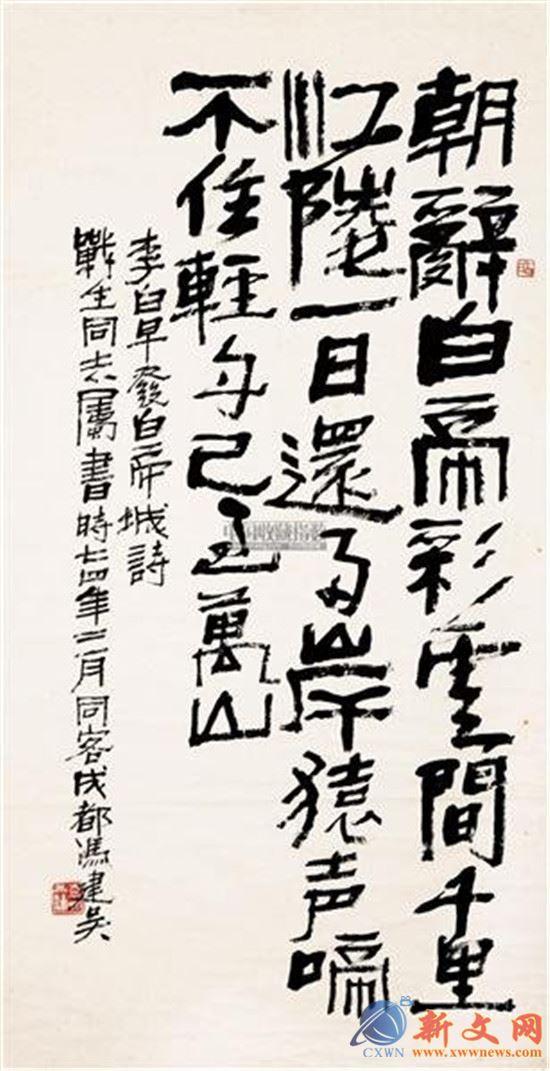 朝辭白帝彩雲間千里
江陵一日還两岸猿声啼
不住輕舟已萬山
李白早發白帝城詩
戰生同志屬書時七四年三月同客成都馮建吳
新文网
CXWN www.xwwnews.com